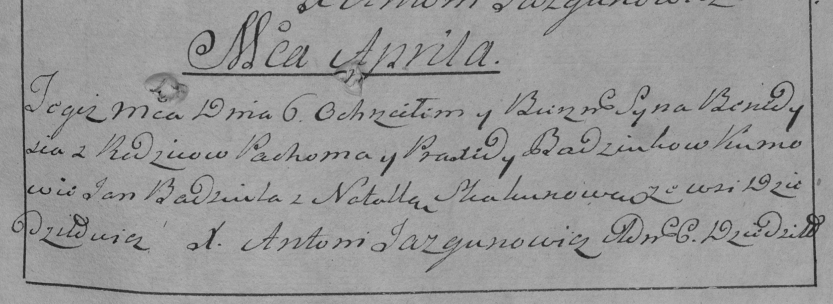 X Antoni Jazgunowicz
Mca Aprila.
Tegiż mca Dnia 6. Ochrzciłem y Birzm Syna Benedy
sia z Rodzicow Pachoma y Praxedy Badziulow Kumo
wie Jan Badziula z Natallą Skakunową ze wsi Dzie
dziłowicz X. Antoni Jazgunowicz Adm C. Dziedziłł